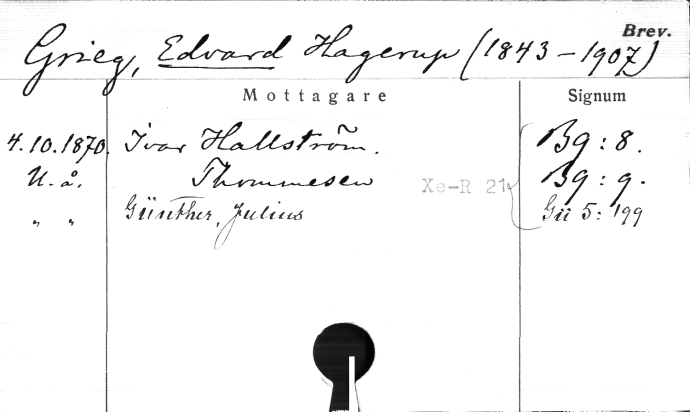 Brev.
Grieg, Edvard Hagerup (1843-1907)
Mottagare Signum
4.10.1870. Ivar Hallström. Bg: 8.
U. å. Thommesen Xe-R 21 Bg: 9.
" " Günther, Julius Gü 5: 199